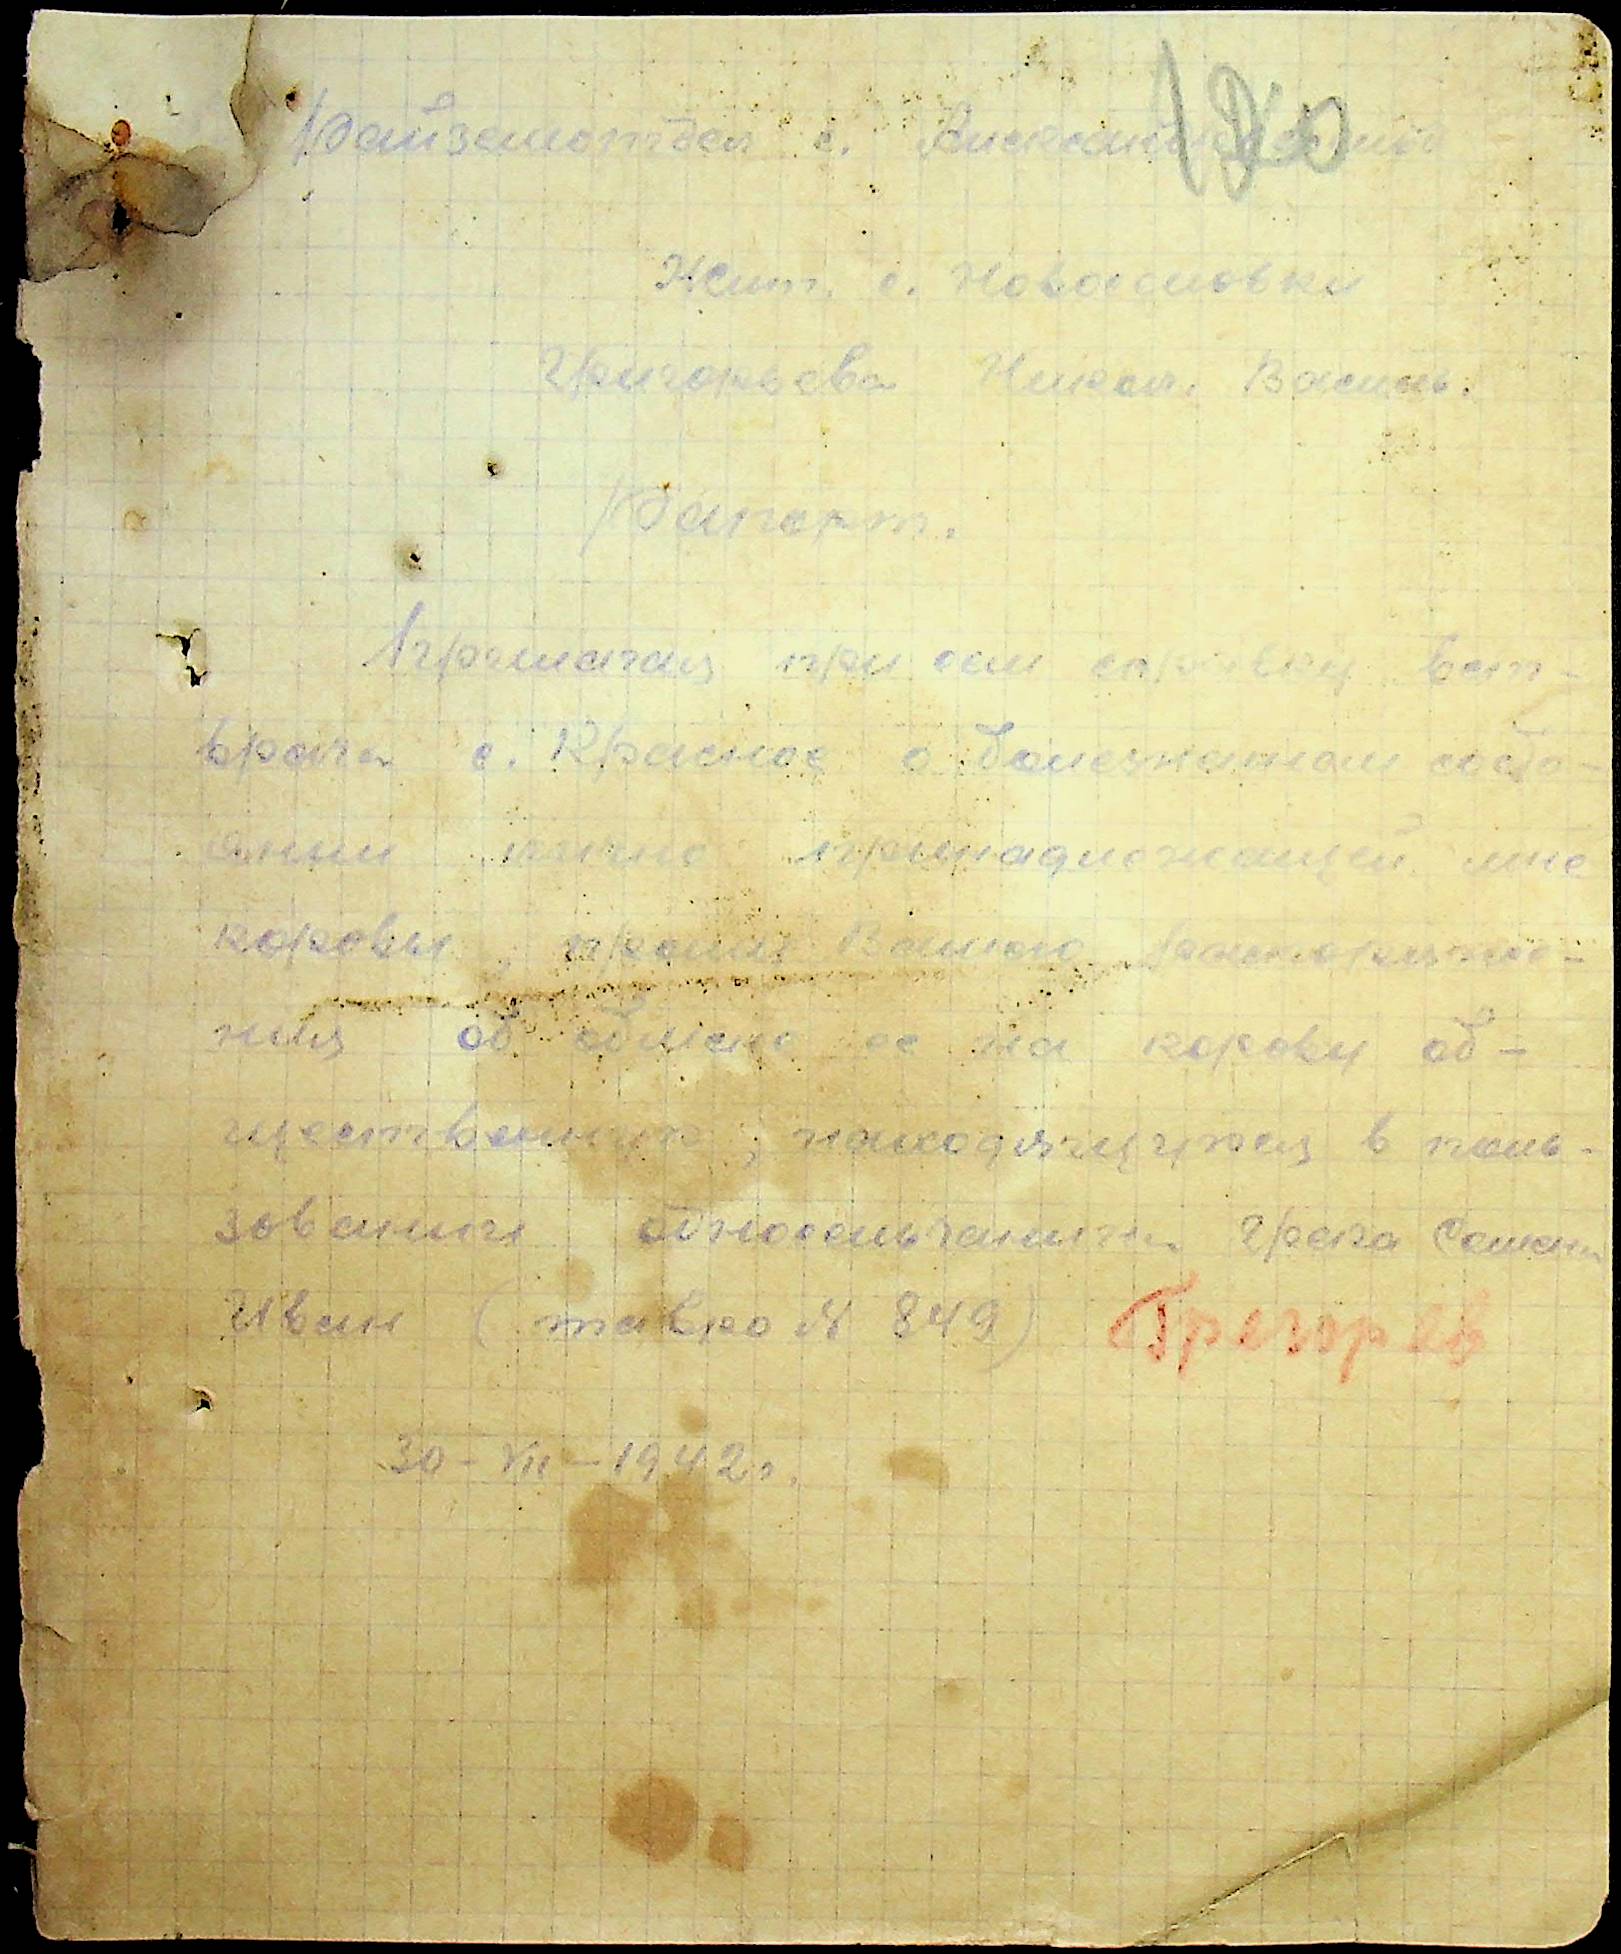 Райземотдел с.
Жит. с. Новоасловки
Григорьева Никол. Василь.
Рапорт.
Прилагая при сем справку вет-
врача с. Красное о болезненном состо-
янии лично принадлежащей мне
коровы, прошу Вашего распоряже-
ния об обмене ее на корову об-
щественную, находящуюся в поль-
зовании односельчанина грека
Иван (тавро № 849) Григорев
30-VII-1942 г.